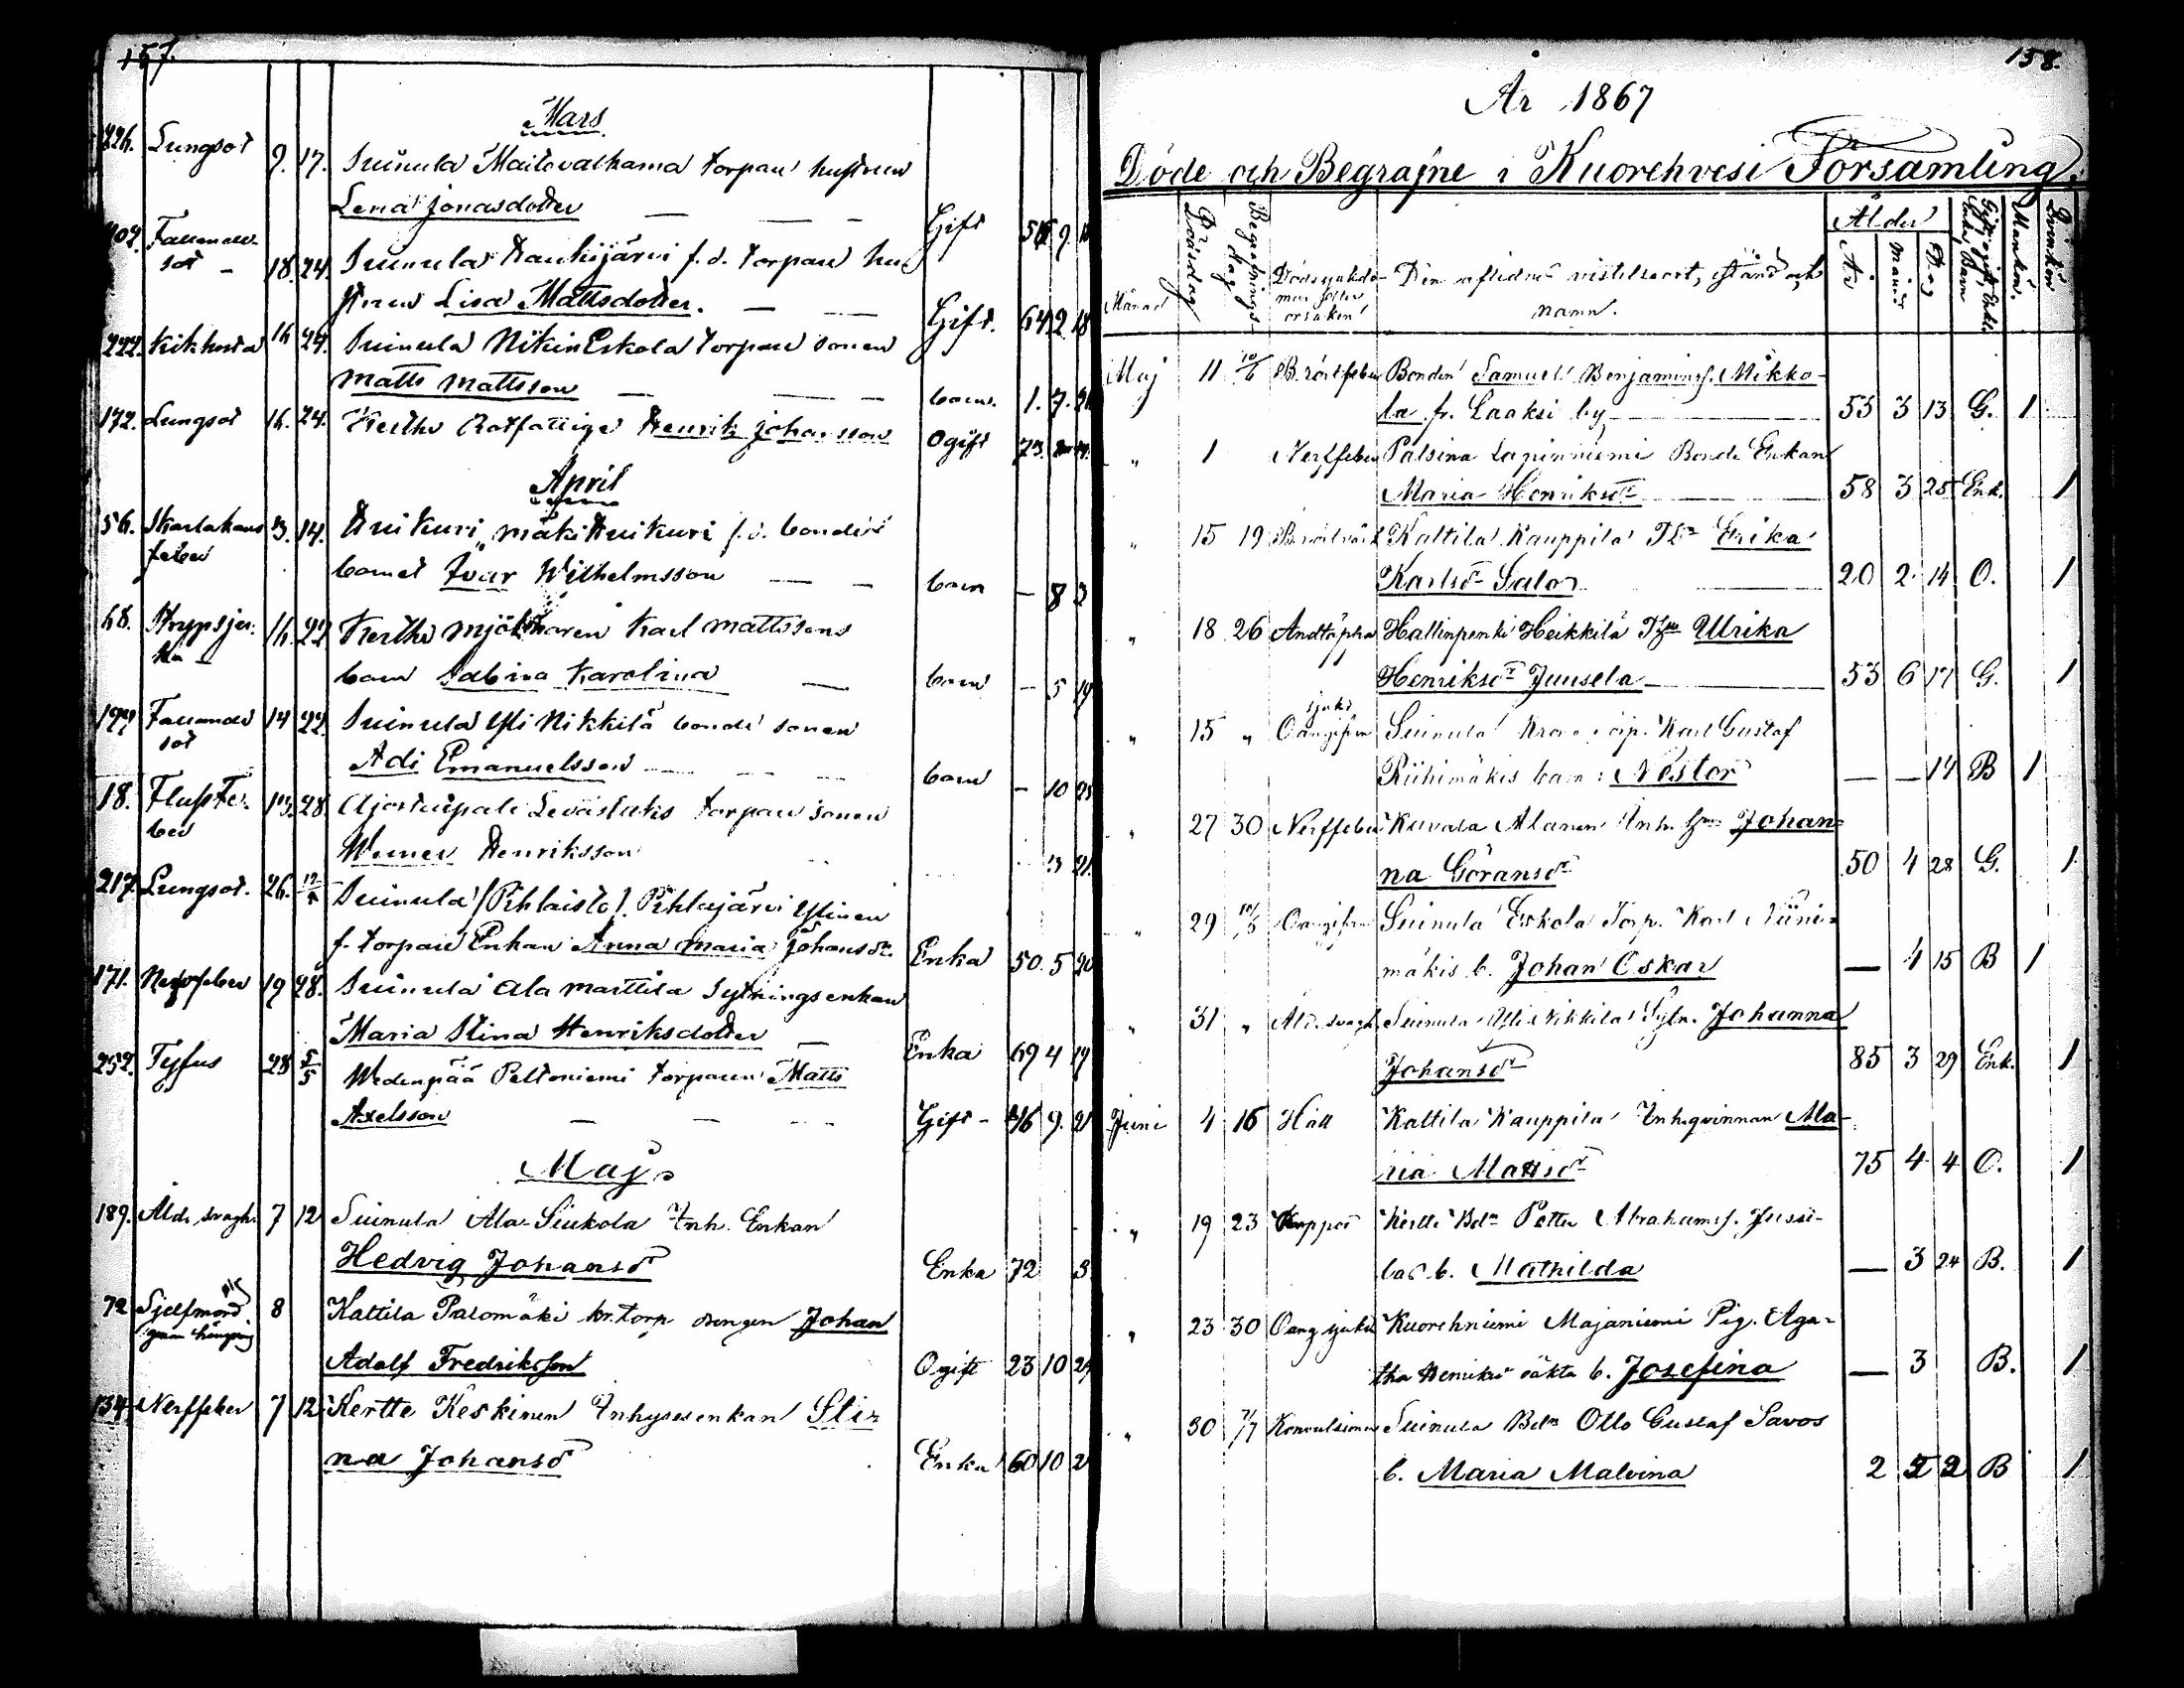 157.
Mars
226. Lungsot 9. 17. Suinula Maitovalkama torpare hustrun
Lena Jonasdotter — — — Gift 9.
202. Fallande-
sot — 18. 24. Suinula Haukijärvi f.d. torpare hu-
strun Lisa Mattsdotter. — — Gift. 64 2 18
222. Kikhosta 16 24. Suinula Nikin Eskola torpare sonen
Matts Mattsson — — — barn. 1. 7.
172. Lungsot 16. 24. Kertte Rotfattige Henrik Johansson Ogift 73.
April
56. Skarlakans
feber 3. 14. Huikuri, mäki Huikuri f.d. bonde
barnet Ivar Wilhelmsson — — barn — 8 3
68. Strypsju-
ka — 16. 22 Kertte mjölnaren Karl Mattssons
barn Sabina Karolina — barn — 5 19
199 Fallande
sot 14 22. Suinula Yli Nikkilä bonde sonen
Adi Emanuelsson — — — barn — 10 25
18. Flussfe-
ber 13. 28. Torpare sonen
Werner Henriksson 3 21.
217. Lungsot. 26. Suinula (Pihlaisto). Pihlajärvi Ylinen
f. torpare Enkan Anna Maria Johansdr. Enka 50. 5 20
171. Nerffeber 19 28. Suinula Ala Marttila Sytningsenkan
Maria Stina Henriksdotter — Enka 69 4 19
252. Tyfus 28 5/5 Wedenpää Peltoniemi torparen Matts
Axelsson — — — Gift — 46 9. 21
Maj
189. Åld. svagh. 7 12 Suinula Ala-Siukola Inh. Enkan
Hedvig Johansdr Enka 72 3
72 Sjelfmord
genom hängning 8 Kattila Palomäki kr. torp. drengen Johan
Adolf Fredriksson Ogift 23 10 24
134. Nerffeber 7 12. Kertte Keskinen Inhysesenkan Sti-
na Johansdr Enka 60 10 2
158.
År 1867
Döde och Begrafne i Kuorehvesi Församling.
Månad Dödsdag Begrafnings-
dag Dödssjukdo-
men eller
orsaken Den aflidnes vistelseort, stånd och
namn. Ålder
År Månad Dag Mankön. Qvinkön
Maj 11 10/6 Bröstfeber Bonden Samuel Benjaminss. Mikko-
la fr. Laaksi by — 53 3 13 G. 1
" 1 Nerffeber Palsina Lapinniemi Bonde Enkan
Maria Henriksdr — 58 3 25 Enk. 1
" 15 19 Kattila Kauppila Erika
Karlsdr Salo — 20 2 14 O. 1
" 18 26 Andtäppa Hallinpenki Heikkilä Ulrika
Henriksdr Juusela — 53 6 17 G. 1
" 15 " Oangifven
sjukd. Suinula Krono torp. Karl Gustaf
Riihimäkis barn: Nestor — — 14 B 1
" 27 30 Nerffeber Kuvala Alanen Inh. hm. Johan-
na Göransdr 50 4 28 G. 1
" 29 Oangifven Suinula Eskola Torp. Karl Niini-
mäkis b. Johan Oskar — 4 15 B 1
" 31 " Åld. svagh. Suinula Yli Nikkilä Sytn. Johanna
Johansdr 85 3 29 Enk. 1
Juni 4 16 Håll Kattila Kauppila Inh.qvinnan Ma-
ria Mattsdr 75 4 4 O. 1
" 19 23 Koppor Kertte Bdn Petter Abrahamss. Jussi-
las b. Mathilda — 3 24 B. 1
" 23 30 Oang. sjukd. Kuorehniemi Majaniemi Pig. Aga-
tha oäkta b. Josefina — 3 B. 1
" 30 7/7 Konvulsioner Suinula Bdn Otto Gustaf Savos
b. Maria Malvina 2 2 2 B 1